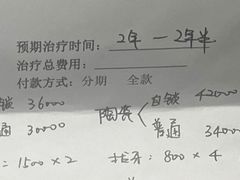 预期治疗时间：2年 — 2年半
治疗总费用：
付款方式：分期 全款
锁 36000 陶瓷 < 自锁 42000
通 30000 普通 34000
= 1500 × 2 拔牙：800 × 4